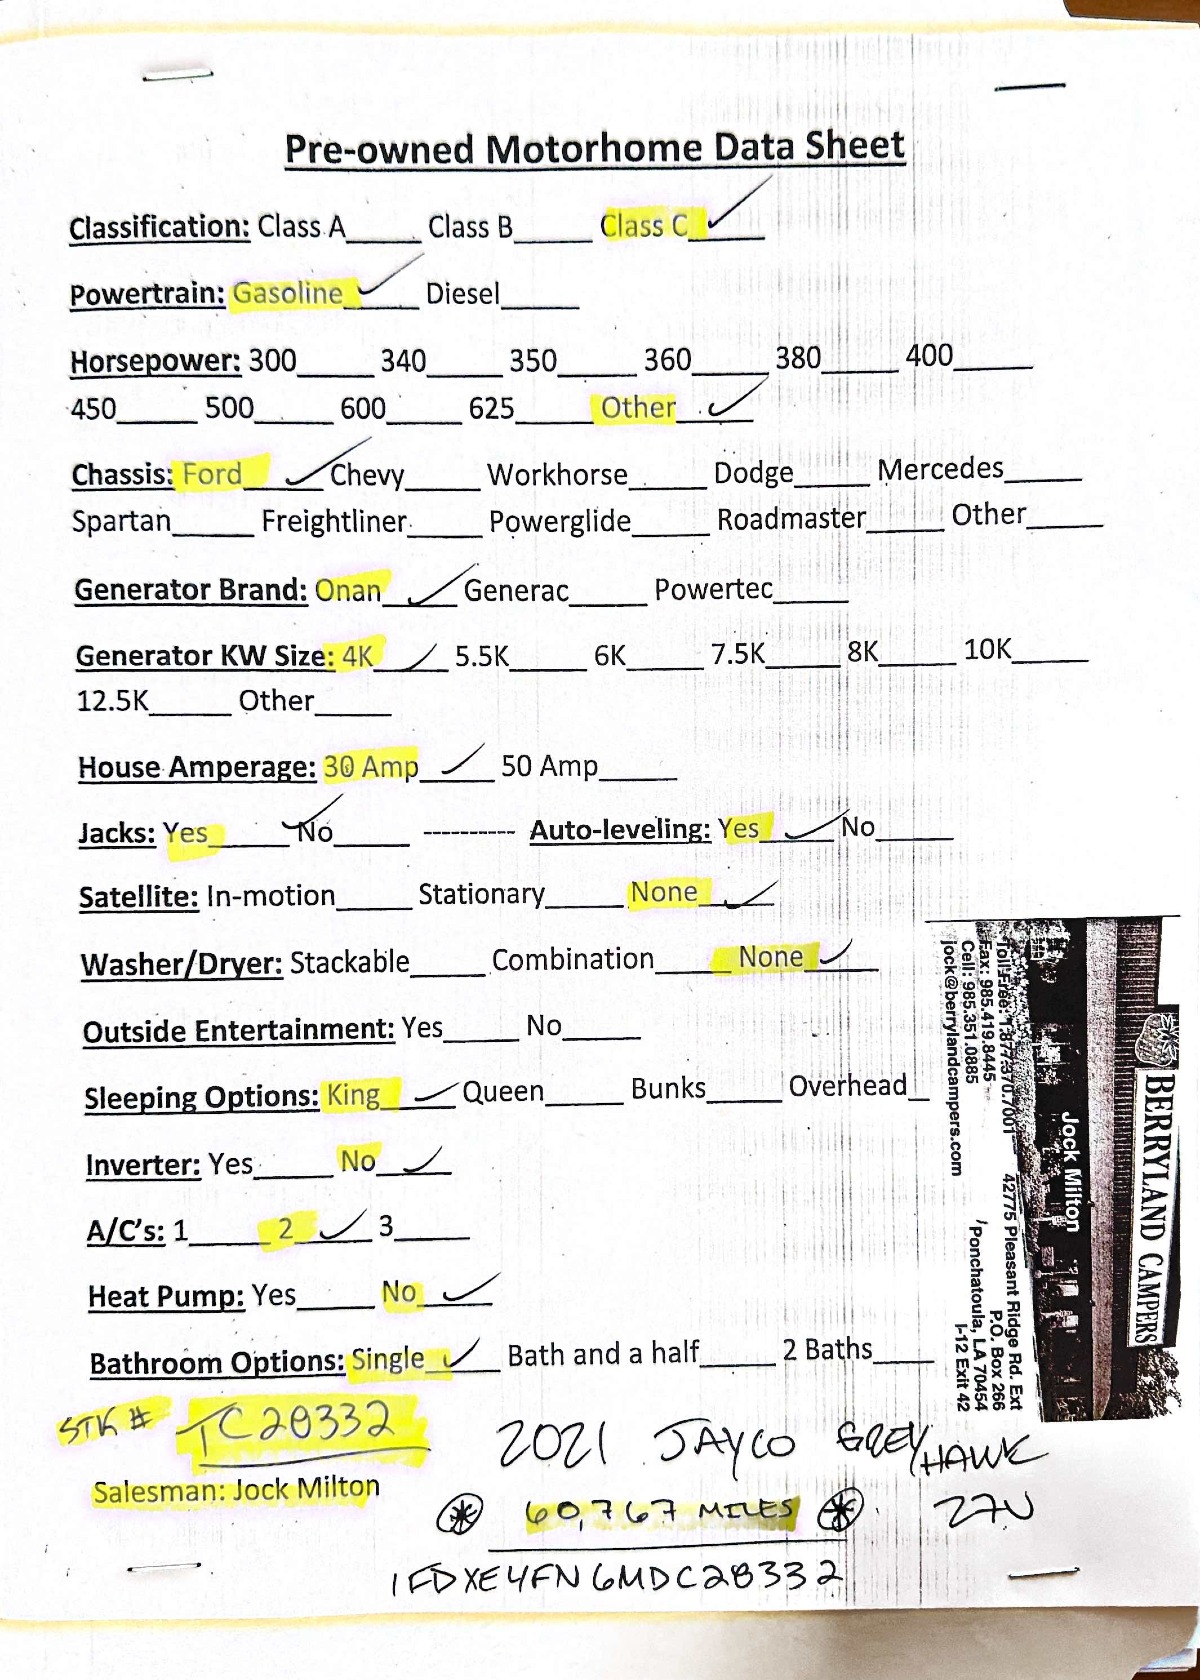 Pre-owned Motorhome Data Sheet
Classification: Class A_____ Class B_____ Class C_____ ✓
Powertrain: Gasoline_____ ✓ Diesel_____
Horsepower: 300_____ 340_____ 350_____ 360_____ 380_____ 400_____
450_____ 500_____ 600_____ 625_____ Other_____ ✓
Chassis: Ford_____ ✓ Chevy_____ Workhorse_____ Dodge_____ Mercedes_____
Spartan_____ Freightliner_____ Powerglide_____ Roadmaster_____ Other_____
Generator Brand: Onan_____ ✓ Generac_____ Powertec_____
Generator KW Size: 4K_____ ✓ 5.5K_____ 6K_____ 7.5K_____ 8K_____ 10K_____
12.5K_____ Other_____
House Amperage: 30 Amp_____ ✓ 50 Amp_____
Jacks: Yes_____ ✓ No_____ ---------- Auto-leveling: Yes_____ ✓ No_____
Satellite: In-motion_____ Stationary_____ None_____ ✓
Washer/Dryer: Stackable_____ Combination_____ None_____ ✓
Outside Entertainment: Yes_____ No_____
Sleeping Options: King_____ ✓ Queen_____ Bunks_____ Overhead_
Inverter: Yes_____ No_____ ✓
A/C's: 1_____ 2_____ ✓ 3_____
Heat Pump: Yes_____ No_____ ✓
Bathroom Options: Single_____ ✓ Bath and a half_____ 2 Baths_____
STK # TC28332
Salesman: Jock Milton
2021 JAYCO GREYHAWK
60,767 MILES 27U
1FDXE4FN6MDC28332
BERRYLAND CAMPERS
Jock Milton
42775 Pleasant Ridge Rd. Ext
P.O. Box 266
Ponchatoula, LA 70454
I-12 Exit 42
Toll Free: 1.877.370.7001
Fax: 985.419.8445
Cell: 985.351.0885
jock@berrylandcampers.com